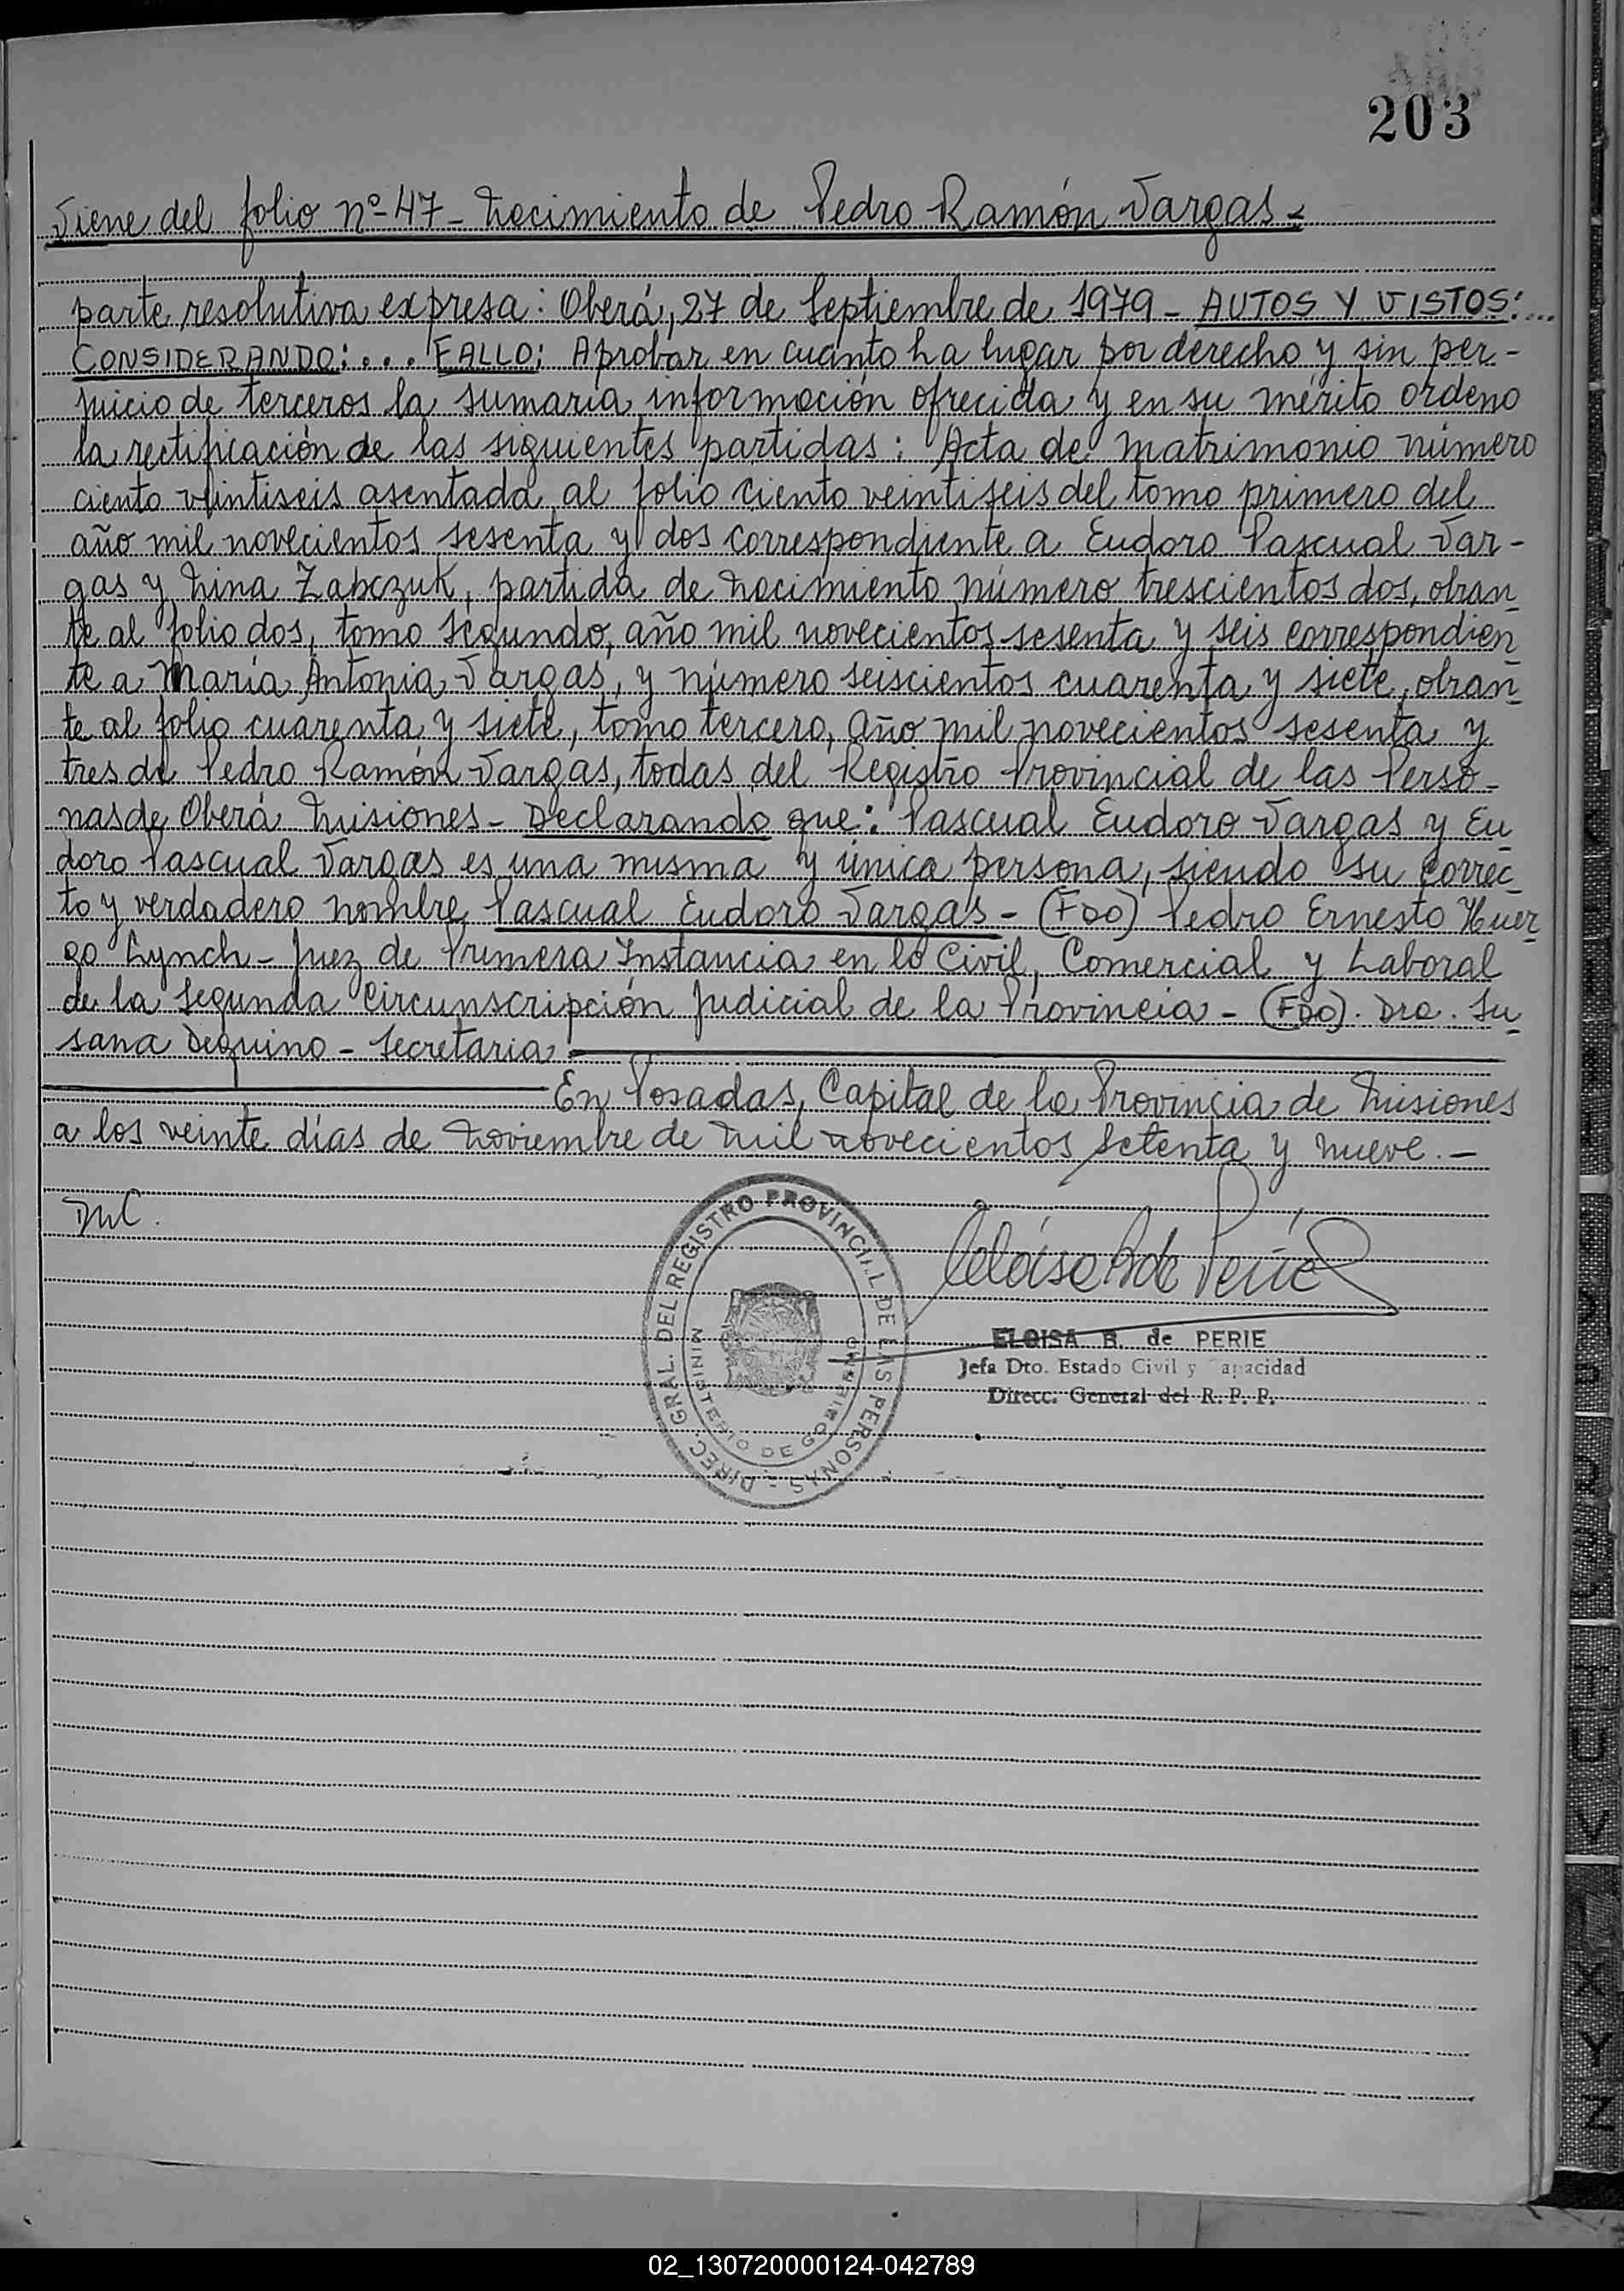 203
Viene del folio nº 47 - Nacimiento de Pedro Ramón Vargas -
parte resolutiva expresa: Oberá, 27 de Septiembre de 1979 - AUTOS Y VISTOS:...
CONSIDERANDO:... FALLO: Aprobar en cuanto ha lugar por derecho y sin per-
juicio de terceros la sumaria información ofrecida y en su mérito ordeno
la rectificación de las siguientes partidas: Acta de Matrimonio número
ciento veintiseis asentada al folio ciento veintiseis del tomo primero del
año mil novecientos sesenta y dos correspondiente a Eudoro Pascual Var-
gas y Nina Zabczuk, partida de Nacimiento número trescientos dos, obran
te al folio dos, tomo segundo, año mil novecientos sesenta y seis correspondien
te a María Antonia Vargas, y número seiscientos cuarenta y siete, obran
te al folio cuarenta y siete, tomo tercero, año mil novecientos sesenta y
tres de Pedro Ramón Vargas, todas del Registro Provincial de las Perso-
nas de Oberá Misiones - Declarando que: Pascual Eudoro Vargas y Eu
doro Pascual Vargas es una misma y única persona, siendo su correc
to y verdadero nombre Pascual Eudoro Vargas - (FDO) Pedro Ernesto Huer
go Lynch - Juez de Primera Instancia en lo Civil, Comercial y Laboral
de la Segunda Circunscripción Judicial de la Provincia - (FDO). Dra. Su
sana Dequino - Secretaria
En Posadas, Capital de la Provincia de Misiones
a los veinte días de Noviembre de mil novecientos setenta y nueve.-
DIREC. GRAL. DEL REGISTRO PROVINCIAL DE LAS PERSONAS -
MINISTERIO DE GOBIERNO
ELOISA B. de PERIE
Jefa Dto. Estado Civil y Capacidad
Direcc. General del R. P. P.
T
U
V
X
Y
Z
02_130720000124-042789